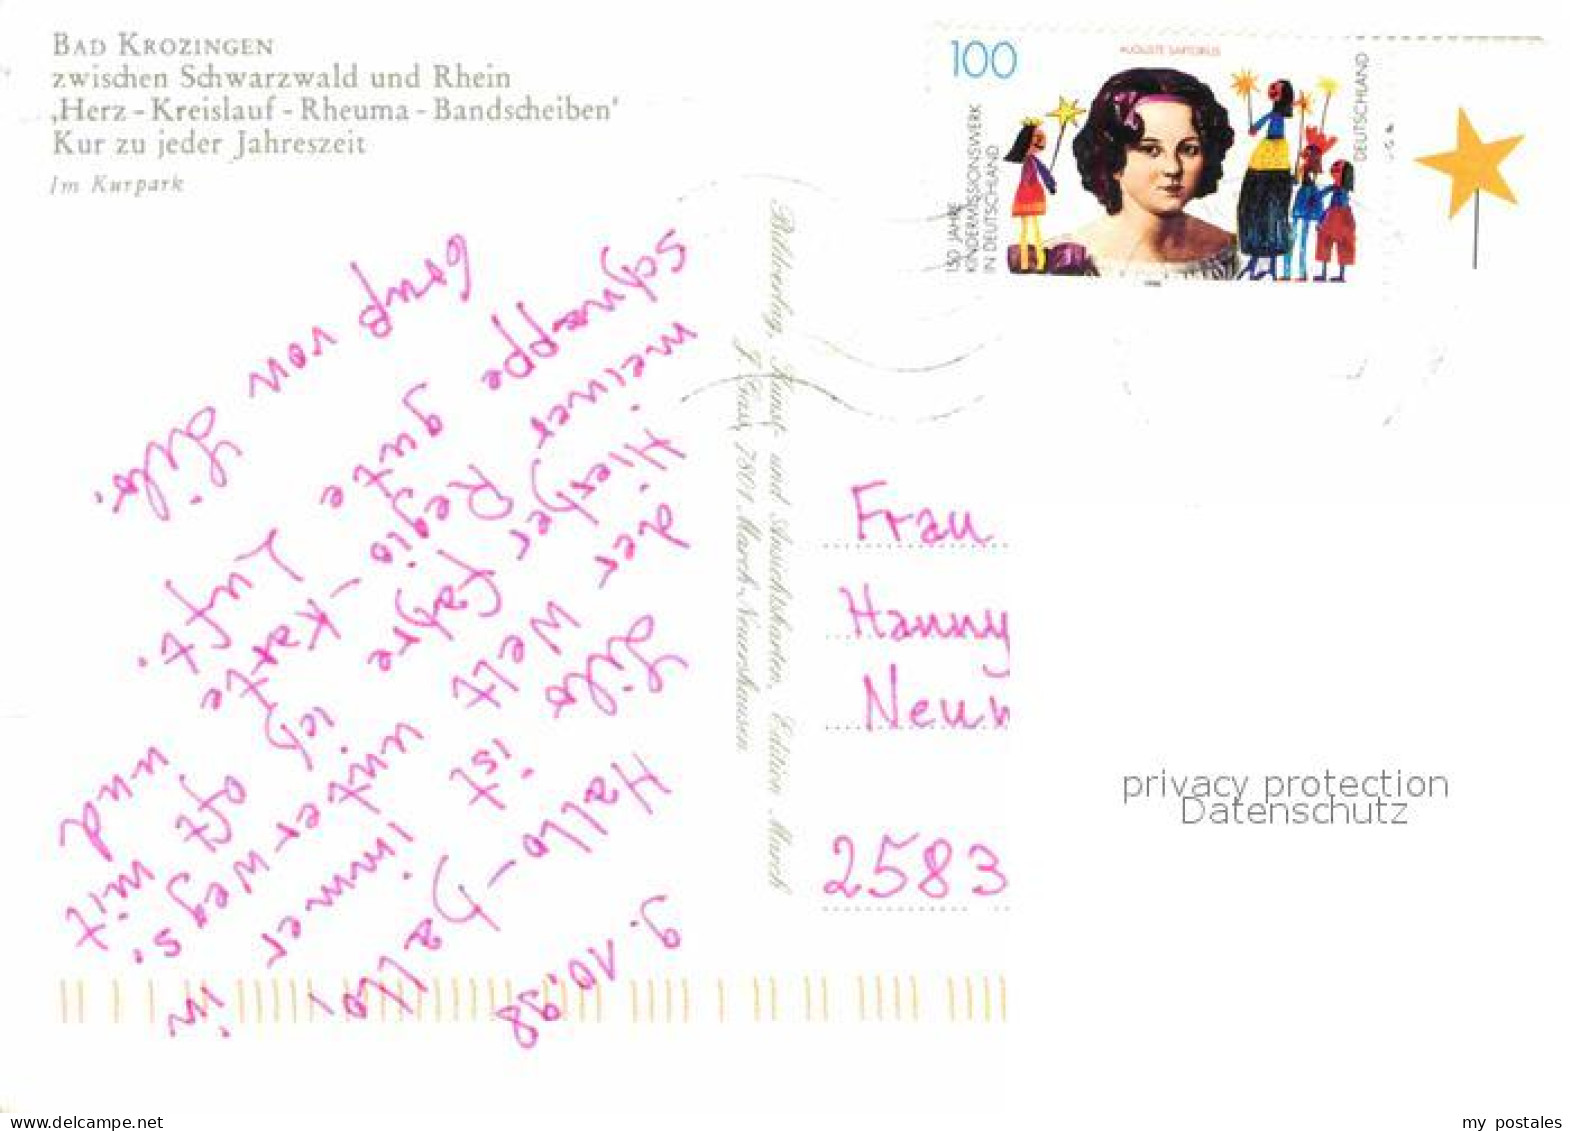 BAD KROZINGEN
zwischen Schwarzwald und Rhein
‚Herz - Kreislauf - Rheuma - Bandscheiben'
Kur zu jeder Jahreszeit
Im Kurpark
100
AUGUSTE SARTORIUS
150 JAHRE
KINDERMISSIONSWERK
IN DEUTSCHLAND
DEUTSCHLAND
1996
9.10.98
Hallo - Hallo,
Lilo ist immer in
der Welt unterwegs.
Hierher fahre ich oft mit
meiner Regio-Karte und
schnappe gute Luft.
von Lilo.
Bildverlag, Kunst- und Ansichtskarten, Edition March
J. Gass, 7801 March-Neuershausen
Frau
Hanny
Neu
2583
privacy protection
Datenschutz
my postales